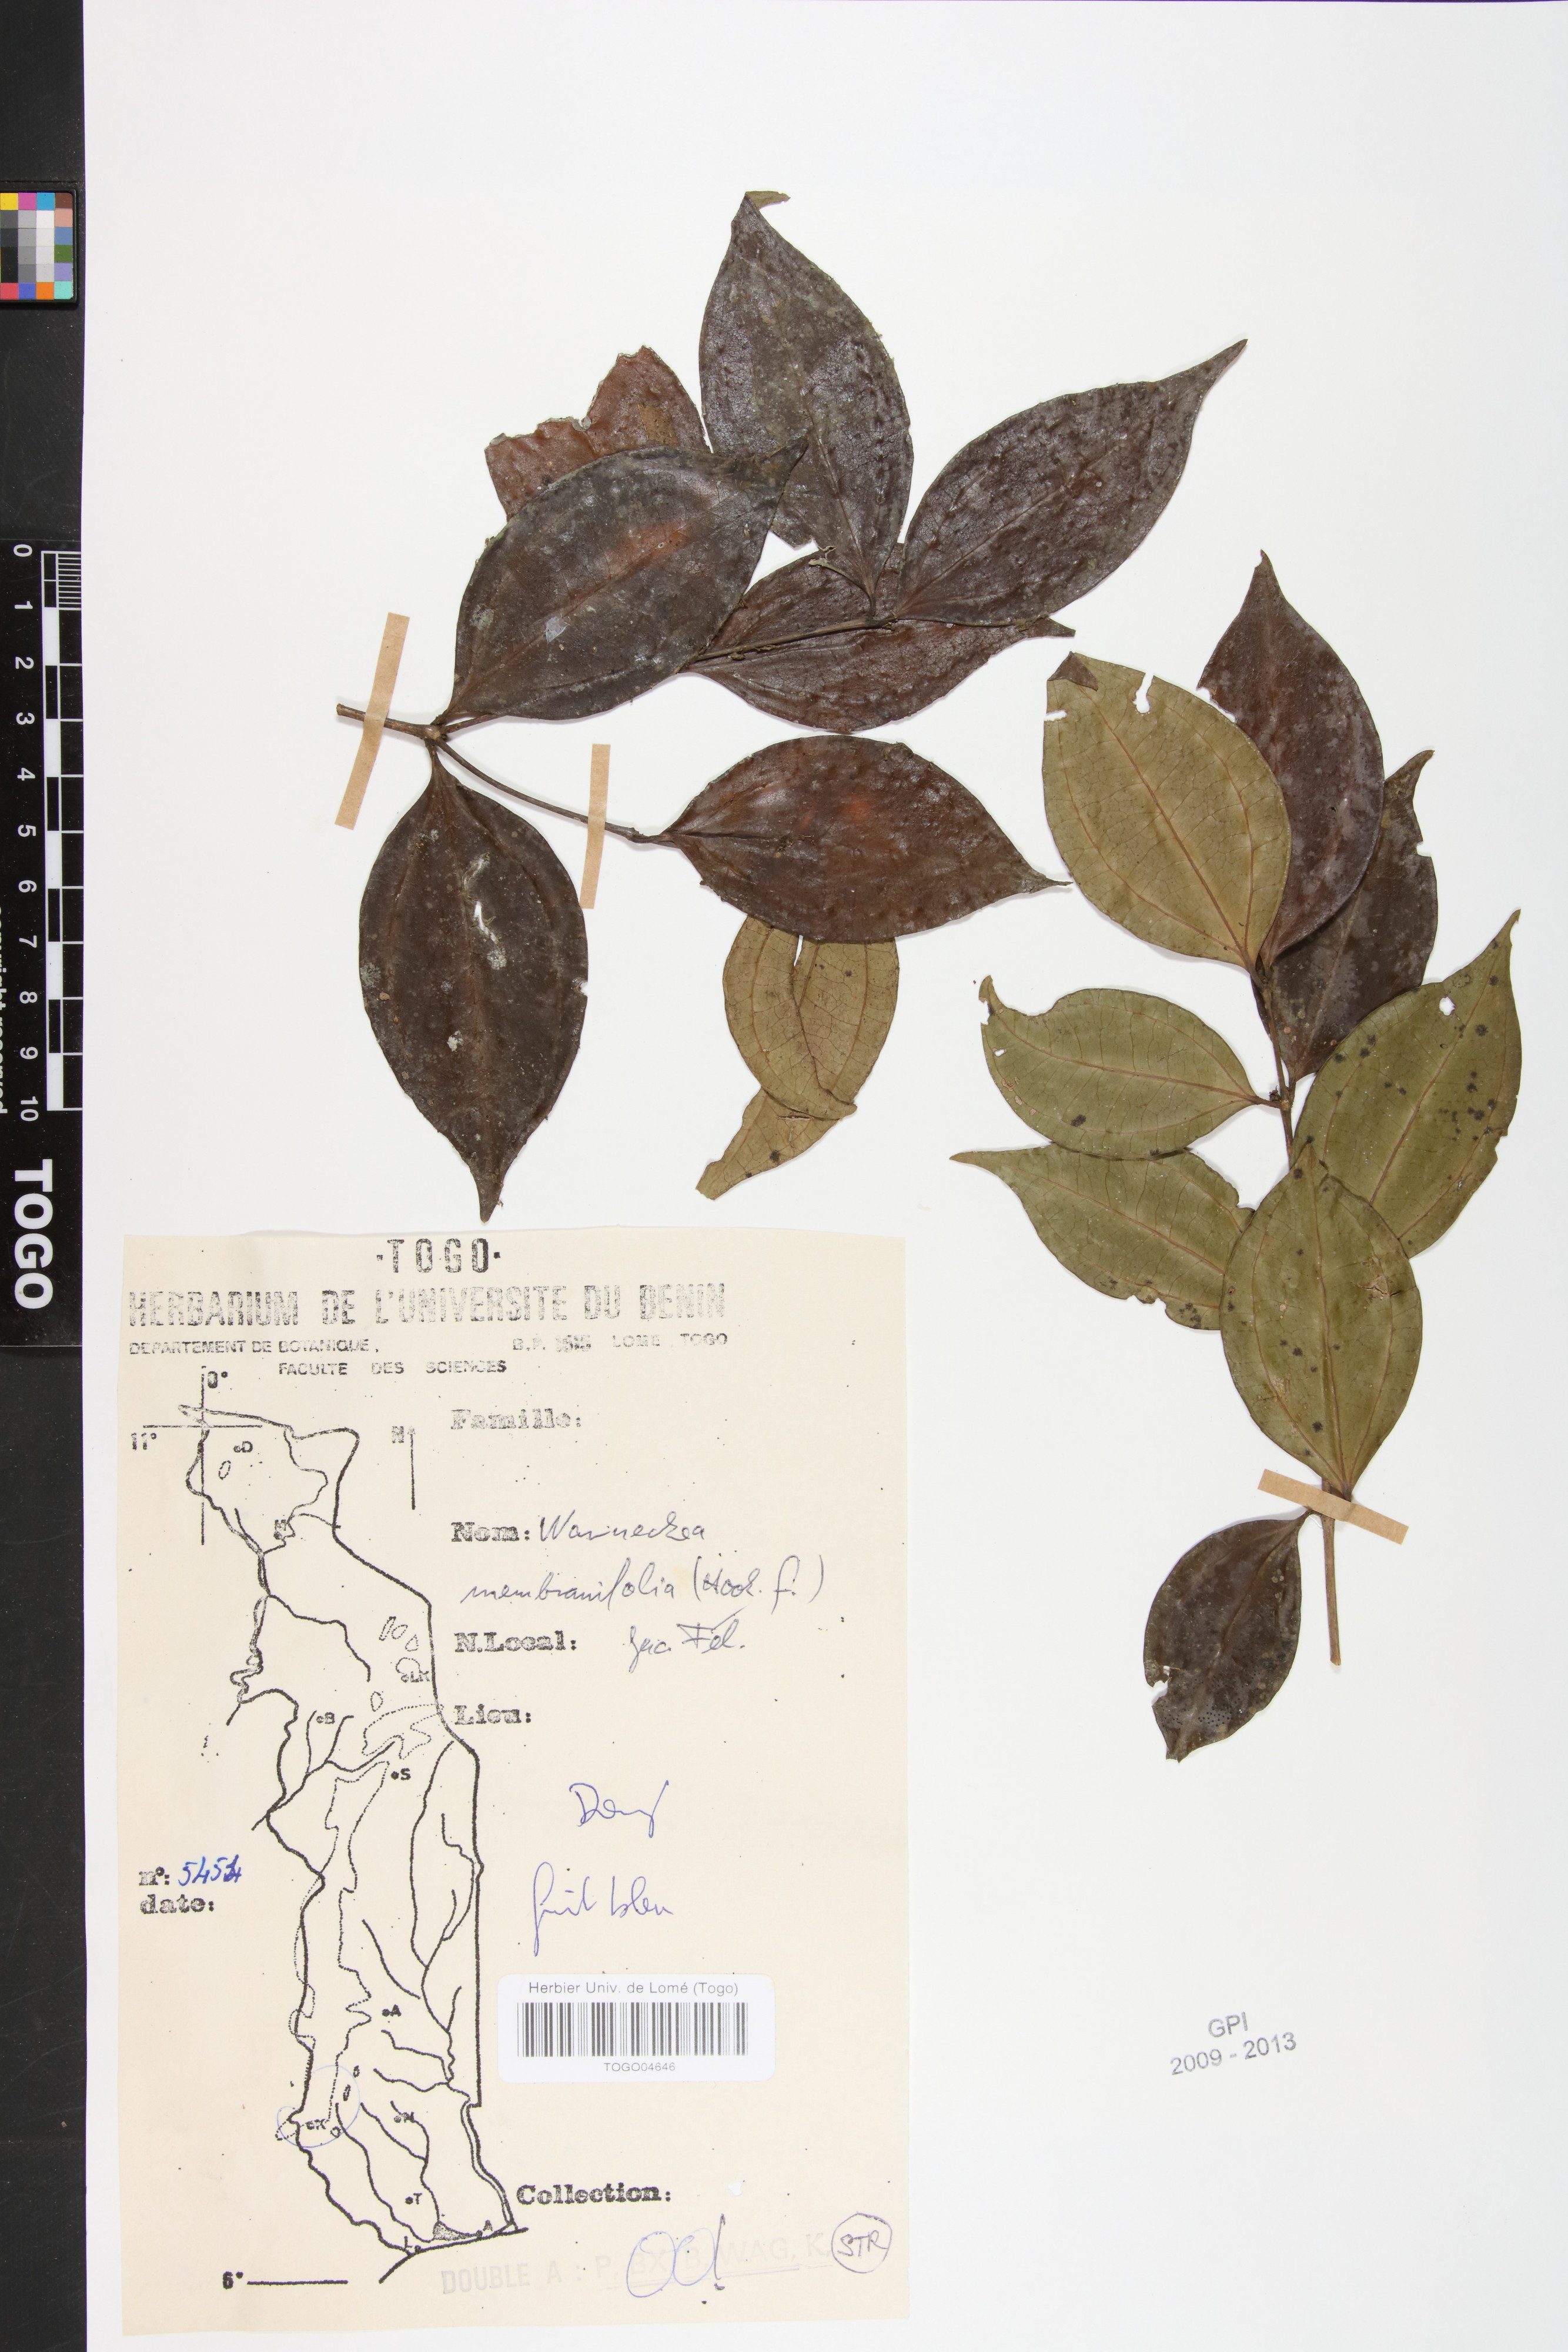 ·TOGO·
HERBARIUM DE L'UNIVERSITE DU BENIN
DEPARTEMENT DE BOTANIQUE, B.P. 1515 LOME TOGO
FACULTE DES SCIENCES
0°
11°
N
Famille:
Nom: Warneckea
membranifolia (Hook. f.)
N.Local: Jac. Fél.
Lieu:
n°: 5454
date:
fruit bleu
Herbier Univ. de Lomé (Togo)
TOGO04646
Collection:
6°
DOUBLE A : P, BX, B, WAG, K,
STR
GPI
2009 - 2013
0 1 2 3 4 5 6 7 8 9 10
TOGO
copyright reserved